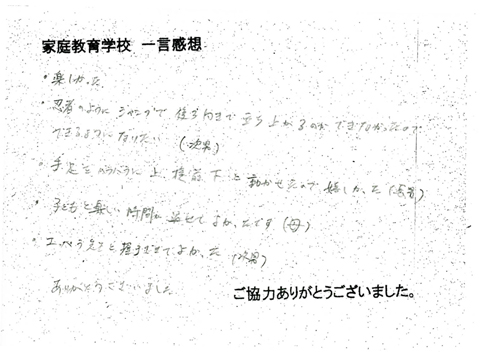 家庭教育学校 一言感想
・楽しかった
・忍者のように ジャンプで 後ろ向きで 立ち上がるのが できなかったので
できるようになりたい (次男)
・手足を 上、 下、と 動かせたので 嬉しかった (長男)
・子どもと楽しい時間を過せてよかったです (母)
・ よかった (次男)
ありがとうございました
ご協力ありがとうございました。